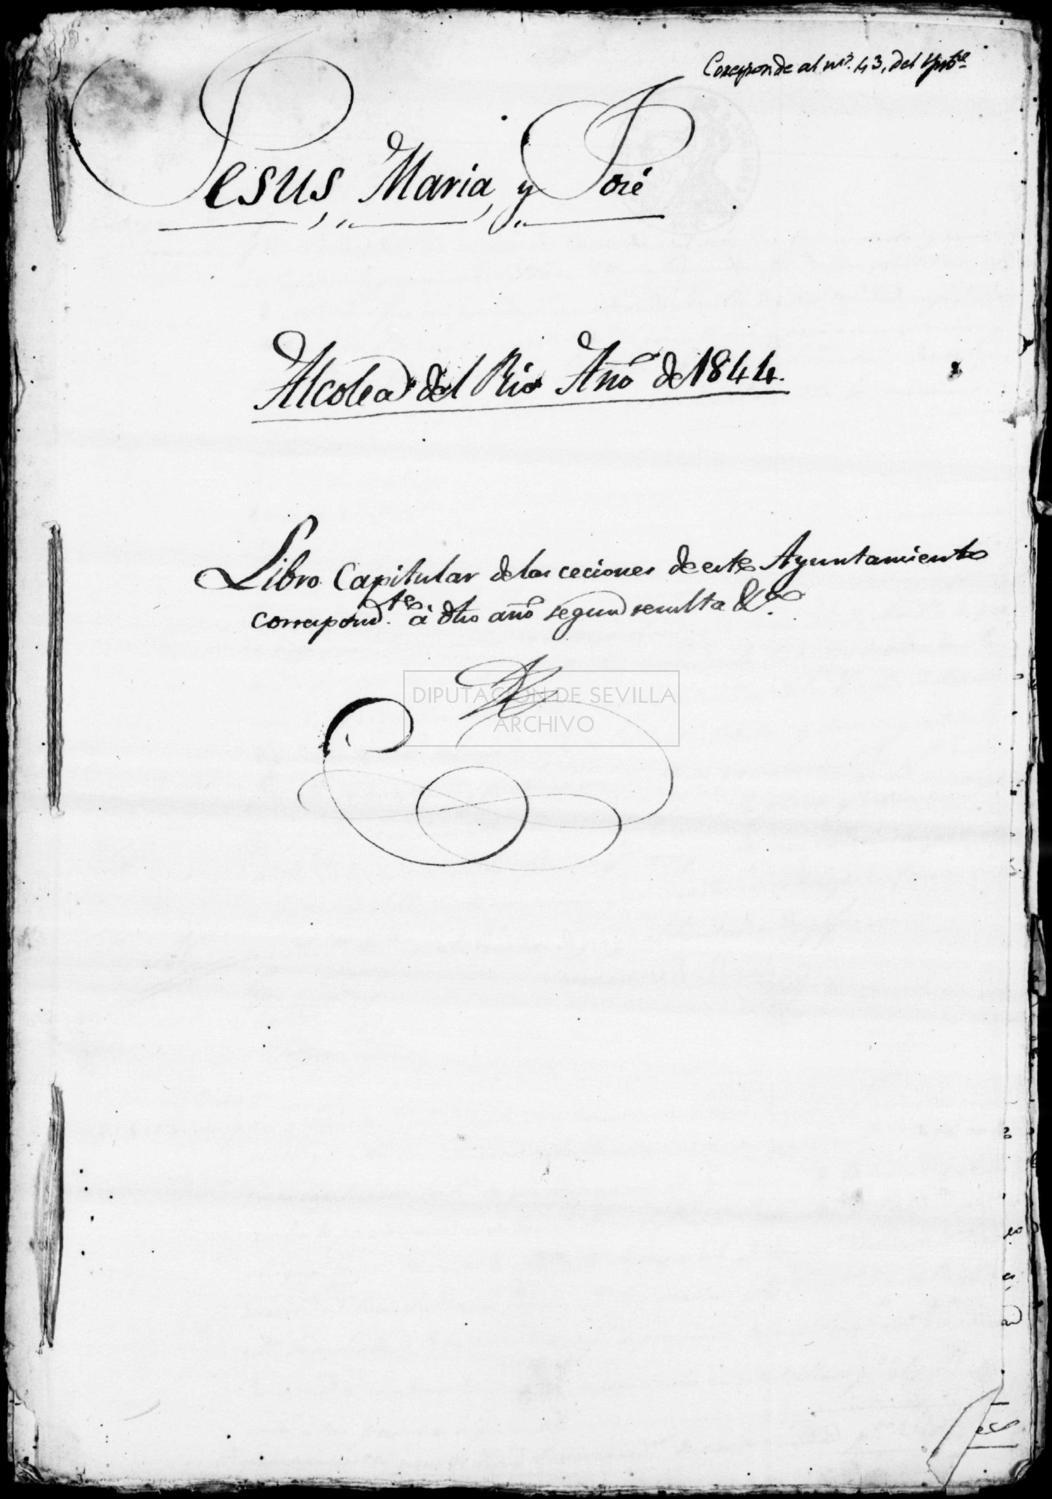 Corresponde al nº. 43, del Ynvº.
Jesus, Maria, y José
Alcolea del Rio Año de 1844.
Libro Capitular de las ceciones de este Ayuntamiento
correspond.te à dho año segun resulta &.ª
DIPUTACIÓN DE SEVILLA
ARCHIVO